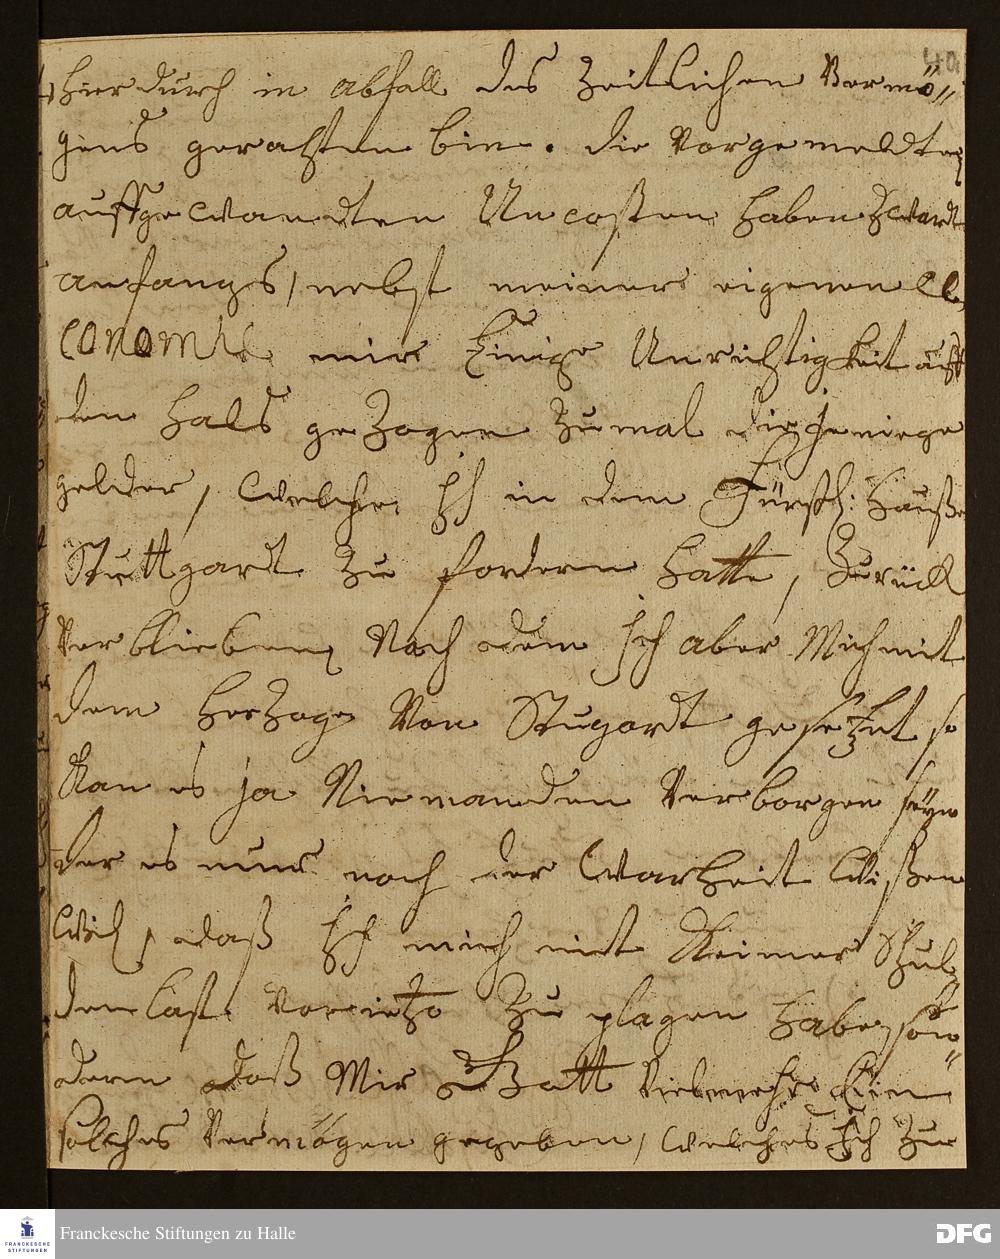 40
hierdurch in abfall des Zeitlichen Vermö„
gens gerahten bin. die Vorgemeldten
auffgewandten Uncosten haben Zwardt
anfangs, nebst meiner eigenen Œ
conomie mir Einige Unrichtigkeit auff
den Hals geZogen Zumal diejeniege
gelder, welche Ich in dem Fürstl: Hauße
Stuttgardt Zu fordern hatte, Zurück
Verblieben, Nach dem Ich aber Mich mit
dem HerZoge Von Stugardt gesetzet so
Kan es ja Niemanden Verborgen seyn
der es nur nach der Warheit Wißen
Will, daß Ich mich mit Keiner Schul
den last Vorietzo Zu plagen habe, son„
dern daß Mir Gott Vielmehr Ein
solches Vermögen gegeben, welches Ich Zur
Franckesche Stiftungen zu Halle
FRANCKESCHE STIFTUNGEN
DFG